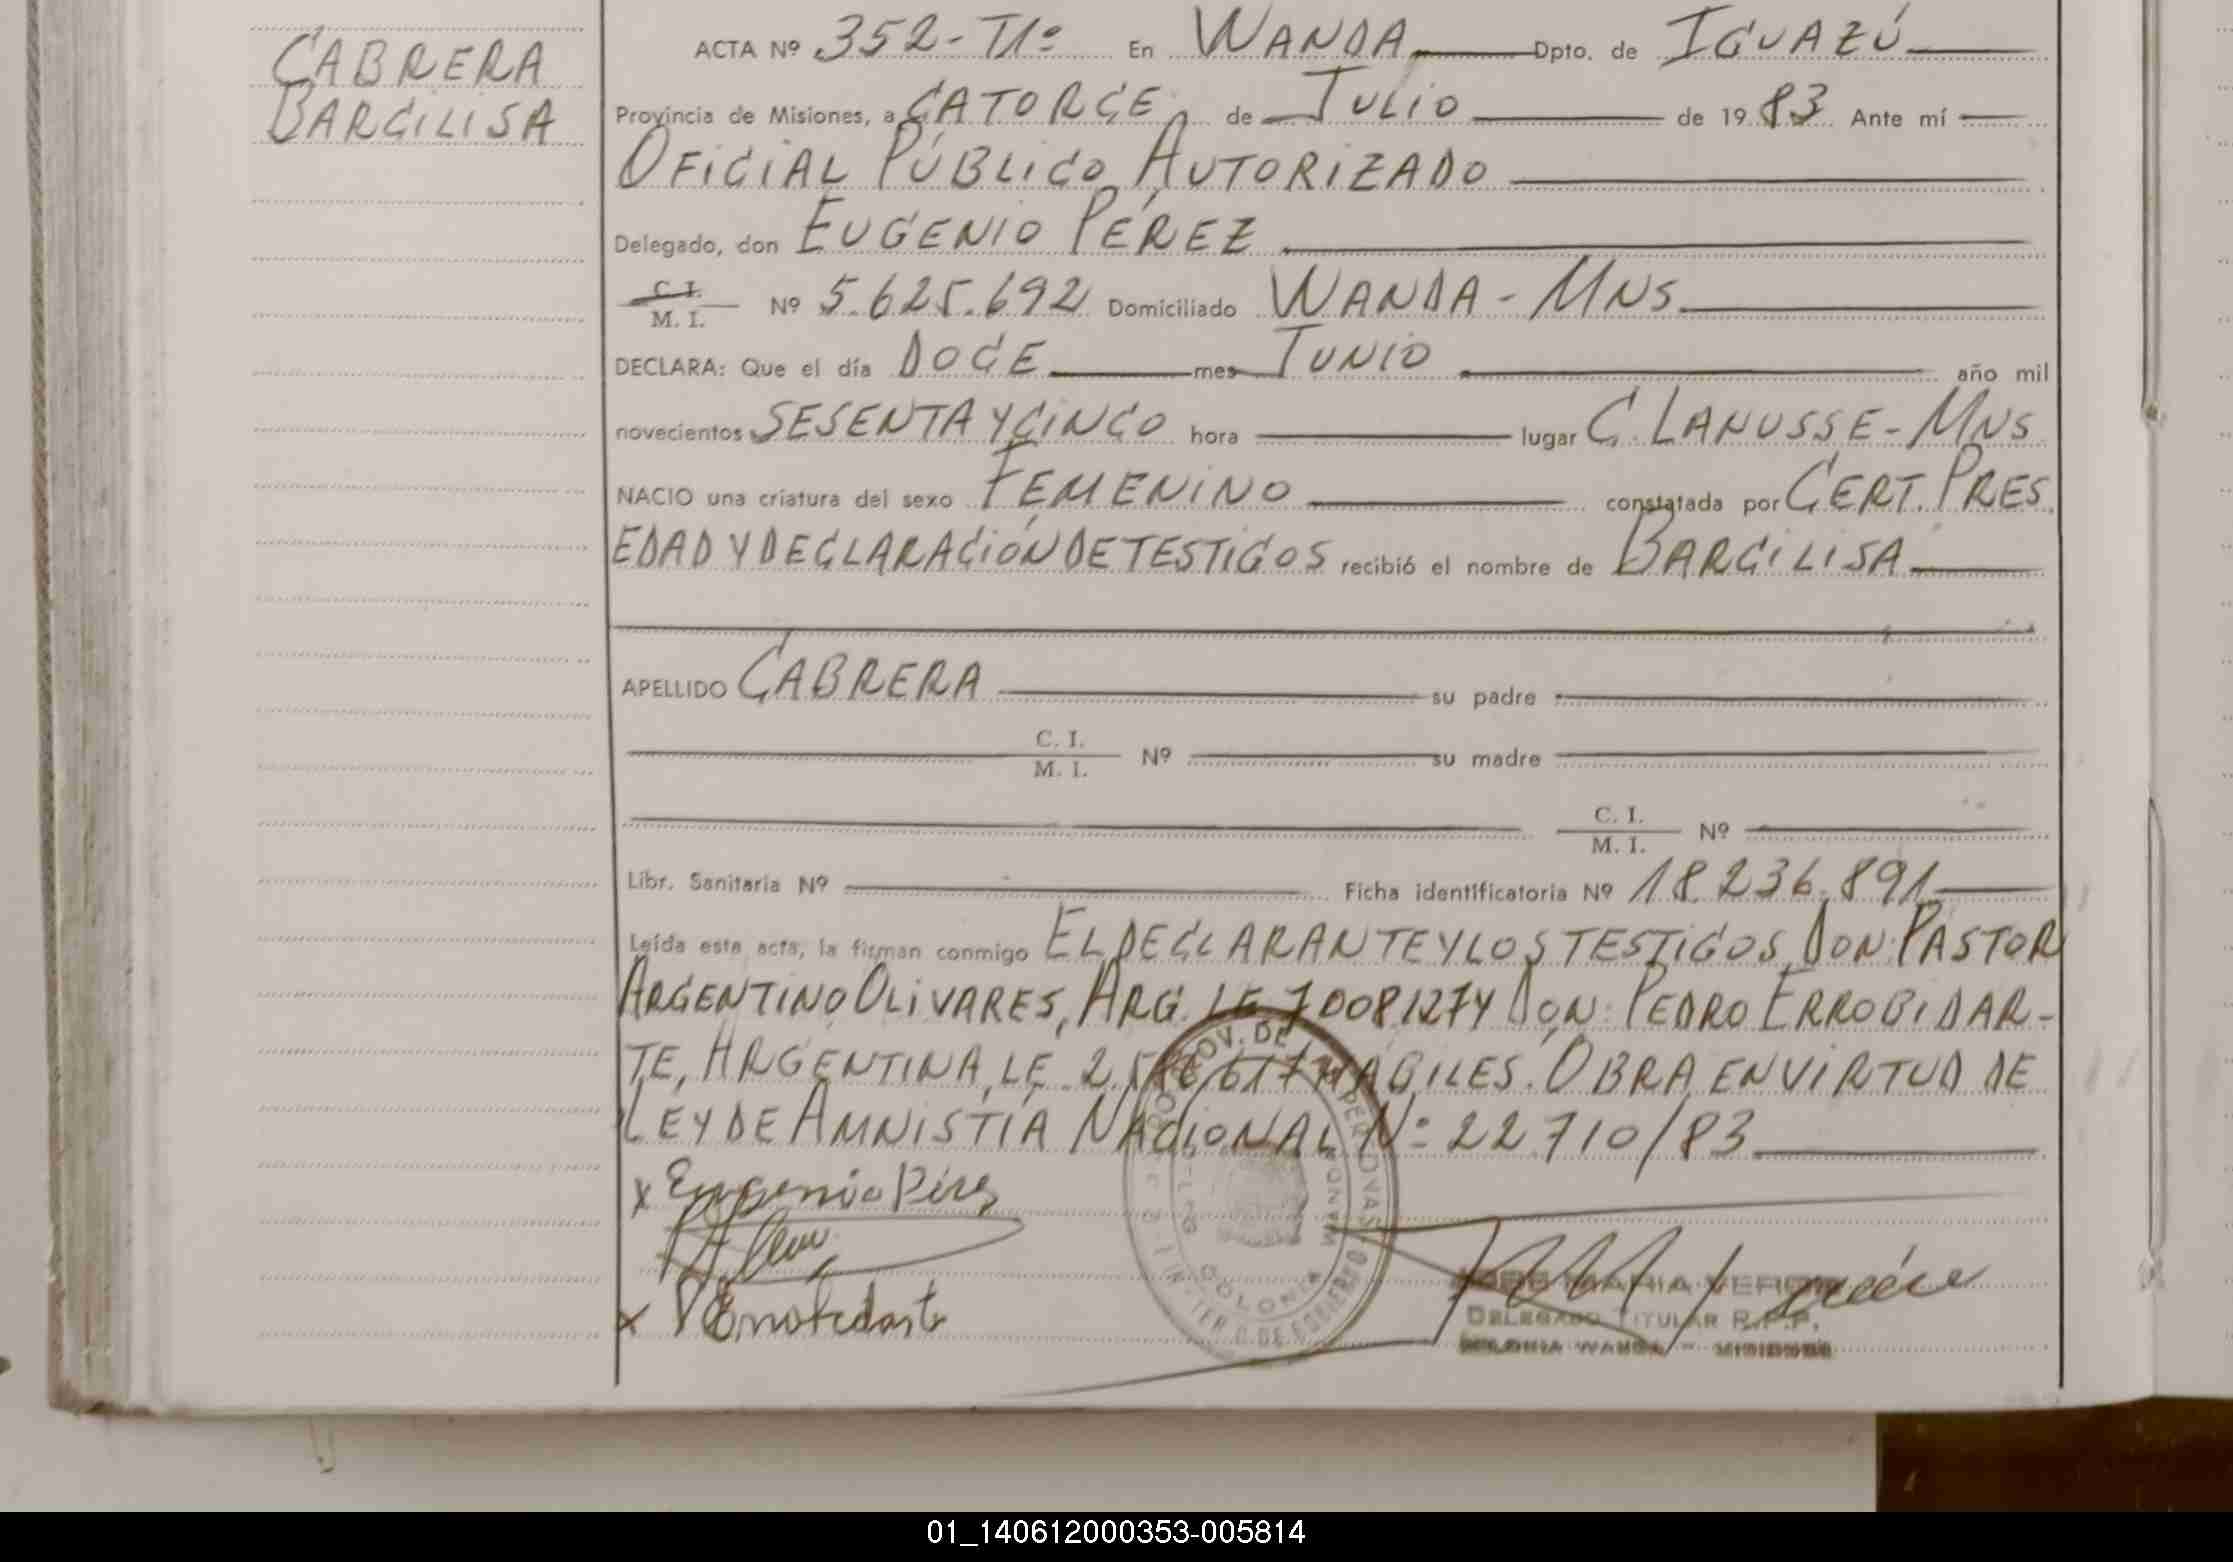 CABRERA
BARCILISA
ACTA Nº 352-T1º En WANDA Dpto. de IGUAZÚ
Provincia de Misiones, a CATORCE de JULIO de 1983 Ante mí
OFICIAL PÚBLICO AUTORIZADO
Delegado, don EUGENIO PÉREZ
C. I.
M. I. Nº 5.625.692 Domiciliado WANDA - MNS
DECLARA: Que el día DOCE mes JUNIO año mil
novecientos SESENTA Y CINCO hora lugar C. LANUSSE - MNS
NACIO una criatura del sexo FEMENINO constatada por CERT. PRES.
EDAD Y DECLARACIÓN DE TESTIGOS recibió el nombre de BARCILISA
APELLIDO CABRERA su padre
C. I.
M. I. Nº su madre
C. I.
M. I. Nº
Libr. Sanitaria Nº Ficha identificatoria Nº 18.236.891
Leída esta acta, la firman conmigo EL DECLARANTE Y LOS TESTIGOS DON: PASTOR
ARGENTINO OLIVARES, ARG. LE Y DON: PEDRO ERROBIDAR-
TE, ARGENTINA, LE HABILES. OBRA EN VIRTUD DE
LEY DE AMNISTÍA NACIONAL Nº 22.710/83
x Eugenio Pérez
x
DELEGADO TITULAR R.P.P.
COLONIA WANDA - MISIONES
COLONIA
01_140612000353-005814